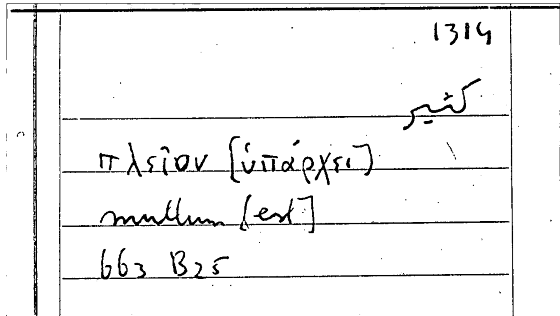 1314
كثير
πλεῖον [ὑπάρχει]
multum [est]
663 B25